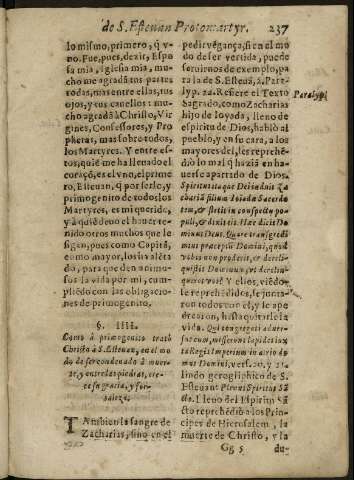 de S. Esteuan Protomartyr. 237
lo mismo, primero, q̃ v-
no. Fue, pues, dezir, Espo
sa mia, Iglesia mia, mu-
cho me agradã tus partes
todas, mas entre ellas, tus
ojos, y tus cauellos: mu-
cho agradã à Christo, Vir
gines, Confessores, y Pro
phetas, mas sobre todos,
los Martyres. Y entre es-
tos, quiẽ me ha llenado el
coraçõ, es el vno, el prime
ro, Esteuan, q̃ por serlo, y
primogenito de todos los
Martyres, es mi querido,
y à quiẽ deuo el hauer te-
nido otros muchos que le
sigan, pues como Capitã,
como mayor, los ha alẽta
do, para que den animo-
sos la vida por mi, cum-
pliẽdo con las obligacio-
nes de primogenito.
§. IIII.
Como à primogenito tratò
Christo à S. Esteuan, en el mo
do de ser condenado à muer-
te, y entre las piedras, cre-
ce en gracia, y for-
taleza.
TAmbien la sangre de
Zacharias, sino en el
pedir vẽgança, si en el mo
do de ser vertida, puede
seruirnos de exemplo, pa
ra la de S. Esteuã, 2. Para-
lyp. 24. Refiere el Texto
Sagrado, como Zacharias
hijo de Ioyada, lleno de
espiritu de Dios, hablò al
pueblo, y en su cara, à los
mayores del, les reprehẽ-
diò lo mal q̃ hazià en ha-
uerse apartado de Dios.
Spiritus itaque Dei induit Za
chariã filium Ioiadæ Sacerdo
tem, & stetit in conspectu po-
puli, & dixit eis. Hæc dicit Do
minus Deus. Quare transgredi
mini præceptũ Domini, quod
vobis non proderit, & dereli-
quistis Dominum, vt derelin-
queret vos? Y ellos, viẽdo-
se reprehẽdidos, se junta-
ron todos con el, y le ape
drearon, hasta quitarle la
vida. Qui congregati aduer-
sus eum, miserunt lapides iux
ta Regis imperium in atrio do
mus Domini, vers. 20. y 21.
lindo geroglifico de S.
Esteuan: Plenus Spiritus Sã
cto. Lleno del Espiritu Sã
cto reprehẽdiò a los Prin
cipes de Hierusalem, la
muerte de Christo, y la
Paralyp.
Gg 5
du-